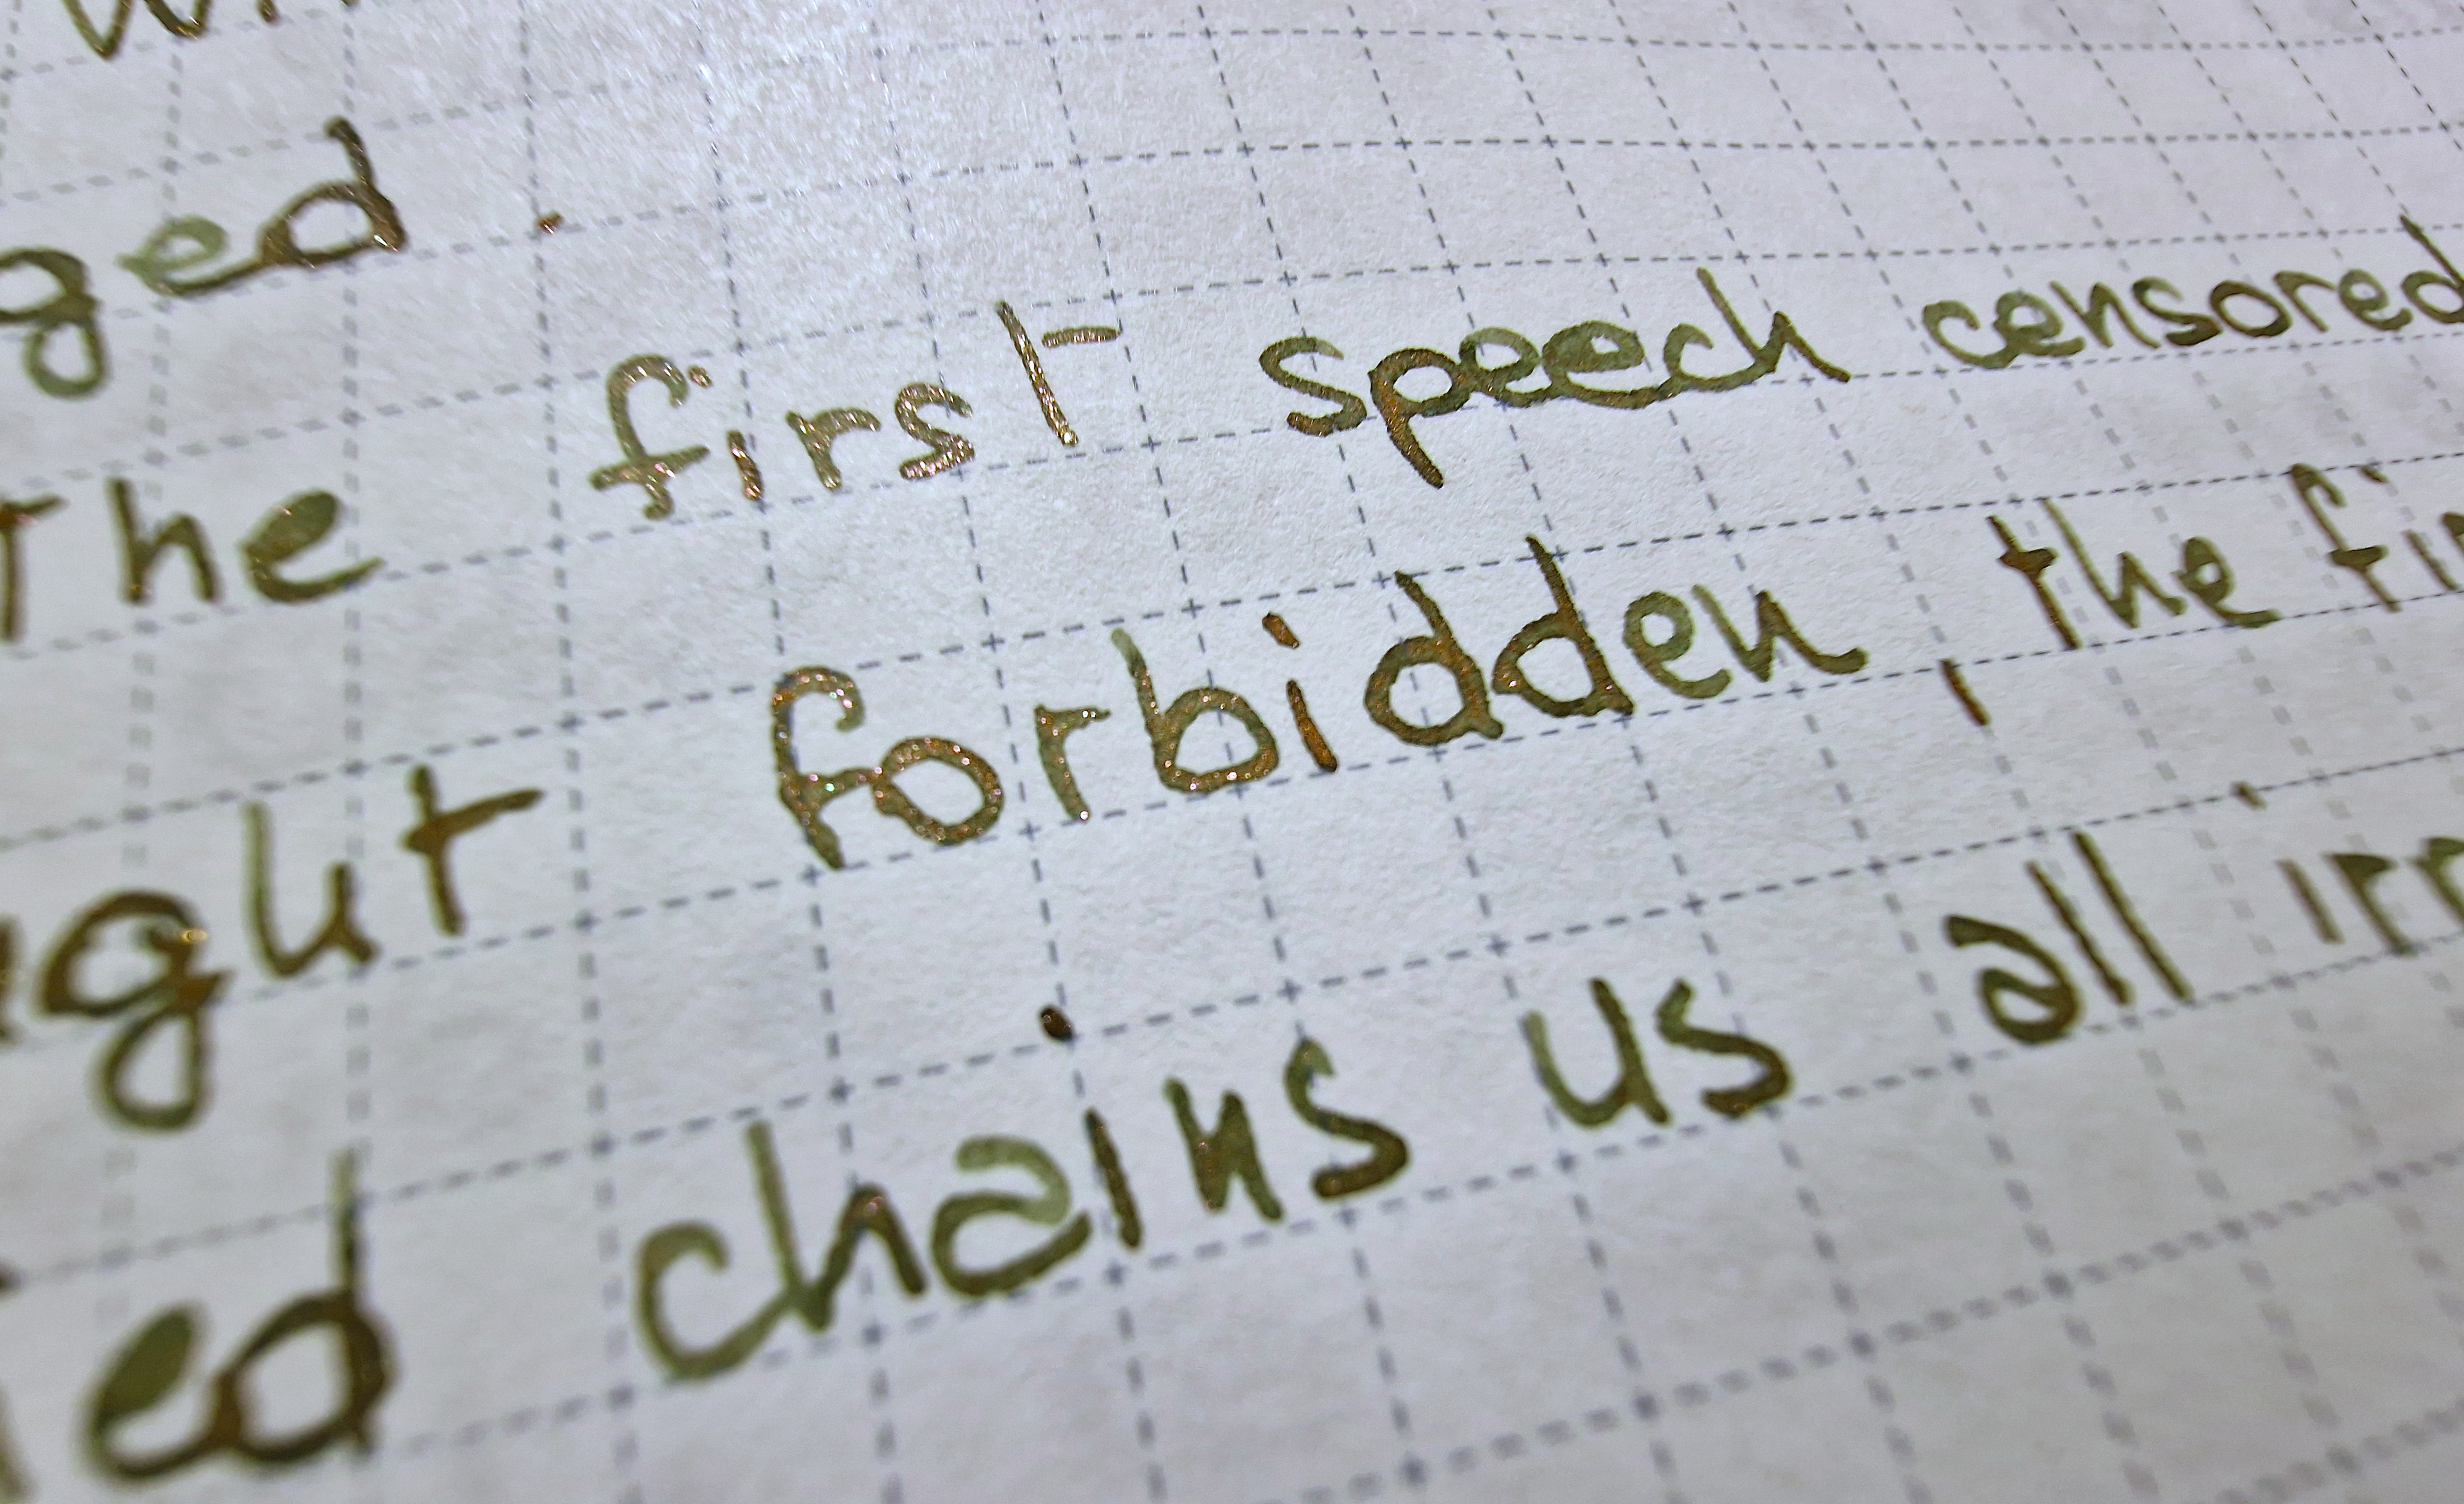 ged.
The first speech censored
ught forbidden, the fi
ied chains us all irr